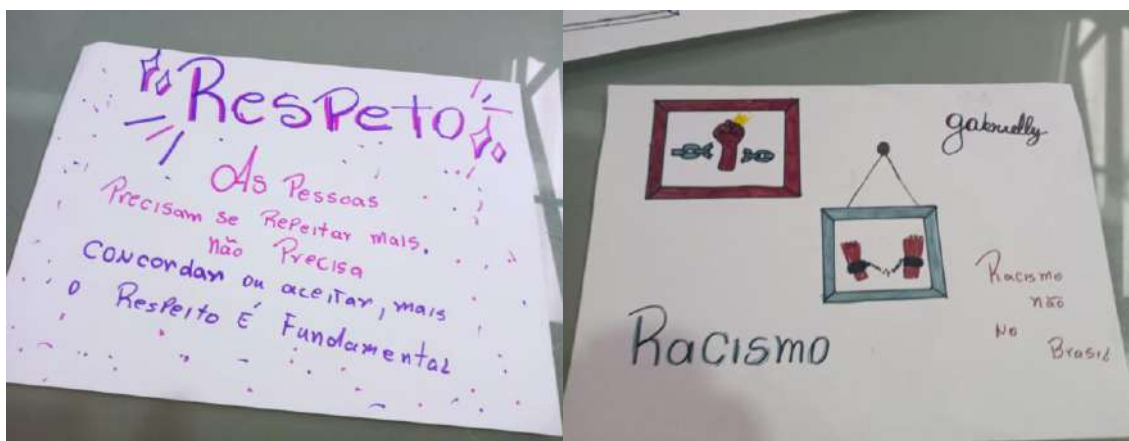 Respeto
As Pessoas
Precisam se Repeitar mais.
não Precisa
Concordar ou aceitar, mais
o Respeito É Fundamental
gabrielly
Racismo
não
No
Brasil
Racismo